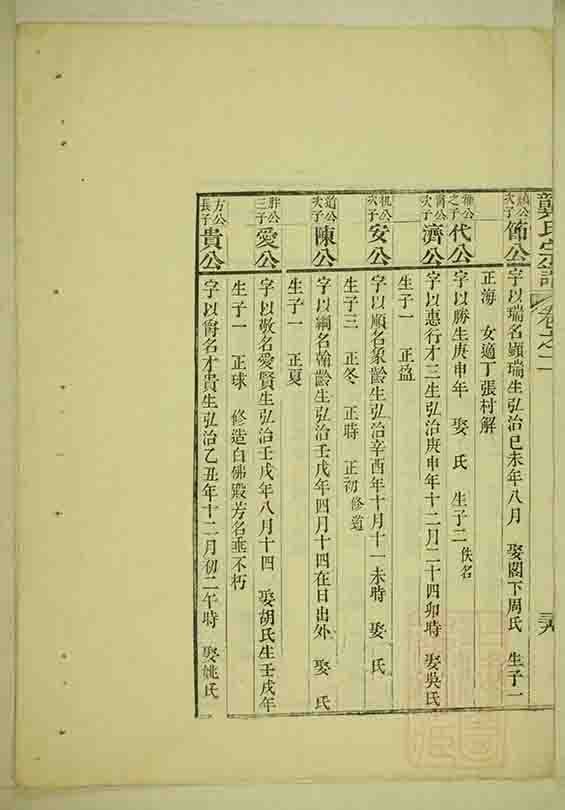 龔氏宗譜 卷之二
次子
佈公 字以瑞名顯瑞生弘治己未年八月 娶閣下周氏 生子一
正海 女適丁張村解
之子
代公 字以勝生庚申年 娶 氏 生子二佚名
次子
濟公 字以惠行才三生弘治庚申年十二月二十四卯時 娶吳氏
生子一 正盈
次子
安公 字以順名象齡生弘治辛酉年十月十一未時 娶 氏
生子三 正冬 正時 正初修道
道公次子
陳公 字以綱名翰齡生弘治壬戌年四月十四在日出外 娶 氏
生子一 正夏
胖公三子
愛公 字以敬名愛賢生弘治壬戌年八月十四 娶胡氏生壬戌年
生子一 正球 修造白佛殿芳名垂不朽
方公長子
貴公 字以爵名才貴生弘治乙丑年十二月初二午時 娶姚氏